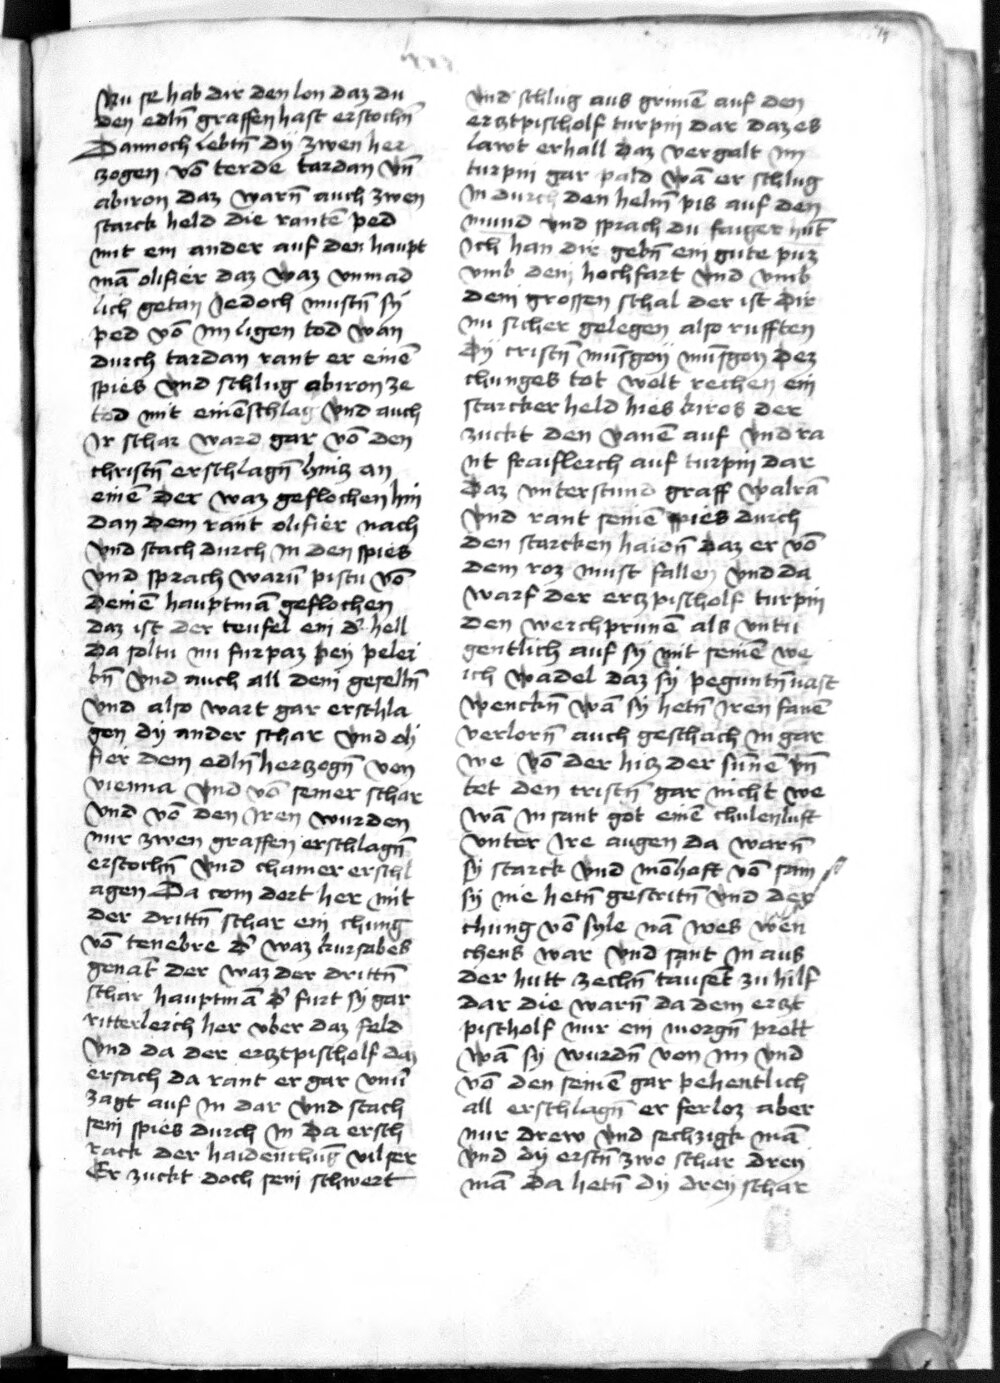 Nu se hab dir den lon daz du
den edln̄ graffen hast erstochn̄
Dannoch lebtn̄ dÿ zwen her
zogen vō terde tardan vn̄
abiron daz warn̄ auch zwen
starck held die rantē ped
mit ein ander auf den haupt
mā olifier daz waz vnmäd
lich getan Jedoch mustn̄ sÿ
ped vō im ligen tod wan
durch tardan rant er einē
spies vnd schlug abiron ze
tod mit einē schlag vnd auch
Ir schar ward gar vō den
christn̄ erschlagn̄ hintz an
einē der waz geflochen hin
dan dem rant olifier nach
vnd stach durch in den spies
vnd sprach warū pistu vō
deinē hauptmā geflochen
daz ist der teufel ein d' hell
da soltu nu furpaz peÿ pelei
bn̄ vnd auch all dein geselln̄
vnd also wart gar erschla
gen dÿ ander schar vnd oli
fier dem edln̄ hertzogn̄ von
vienna vnd vō seiner schar
vnd vō den iren wurden
nur zwen graffen erschlagn̄
erstochn̄ vnd chamer erschl
agen Da com dort her mit
der drittn̄ schar ein chung
vō tenebre d' waz kursabes
genāt der waz der drittn̄
schar hauptmā d' furt sÿ gar
ritterleich her vber daz feld
vnd da der ertztpischolf daz
ersach da rant er gar vnū
zagt auf in dar vnd stach
sein spies durch in da ersch
rack der haidenchūg vil ser
Er zuckt doch sein schwert
vnd schlug aus grimē auf den
ertztpischolf turpin dar daz es
lawt erhall daz vergalt im
turpin gar pald wā er schlug
in durch den helm̄ pis auf den
mund vnd sprach du faiger nūt
Ich han dir gebn̄ ein gute puz
vmb dein hochfart vnd vmb
dein grossen schal der ist dir
nu sicher gelegen also rufften
dÿ cristn̄ mūsgoÿ mūsgoy dez
chunges tot wolt rechen ein
starcker held hies kiros der
zuckt den vanē auf vnd ra
nt fraislerch auf turpin dar
daz vnterstund graff walrā
vnd rant seinē spies durch
den starcken haidn̄ daz er vō
dem roz must fallen vnd da
warf der ertzpischolf turpin
den werchprunē als vntu
gentlich auf sÿ mit seinē we
ich wadel daz sÿ peguntn̄ vast
wenckn̄ wā sÿ hetn̄ iren fanē
verlorn̄ auch geschach in gar
we vō der hitz der sunnē vn̄
tet den cristn̄ gar nicht we
wā in sant got einē chulen luft
vnter ire augen da warn̄
sÿ starck vnd mōhaft vō sam
sÿ nie hetn̄ gestritn̄ vnd der
chung vō syle nā nes wen
chens war vnd sant in aus
der hutt zechn̄ tausēt zu hilf
dar die warn̄ da dem ertzt
pischolf nur ein morgn̄ prott
wā sÿ wurdn̄ von im vnd
vō den seinē gar pehentlich
all erschlagn̄ er ferloz aber
nur drew vnd sechzigk mā
vnd dÿ erstn̄ zwe schar dreÿ
mā Da hetn̄ dÿ dreÿ schar